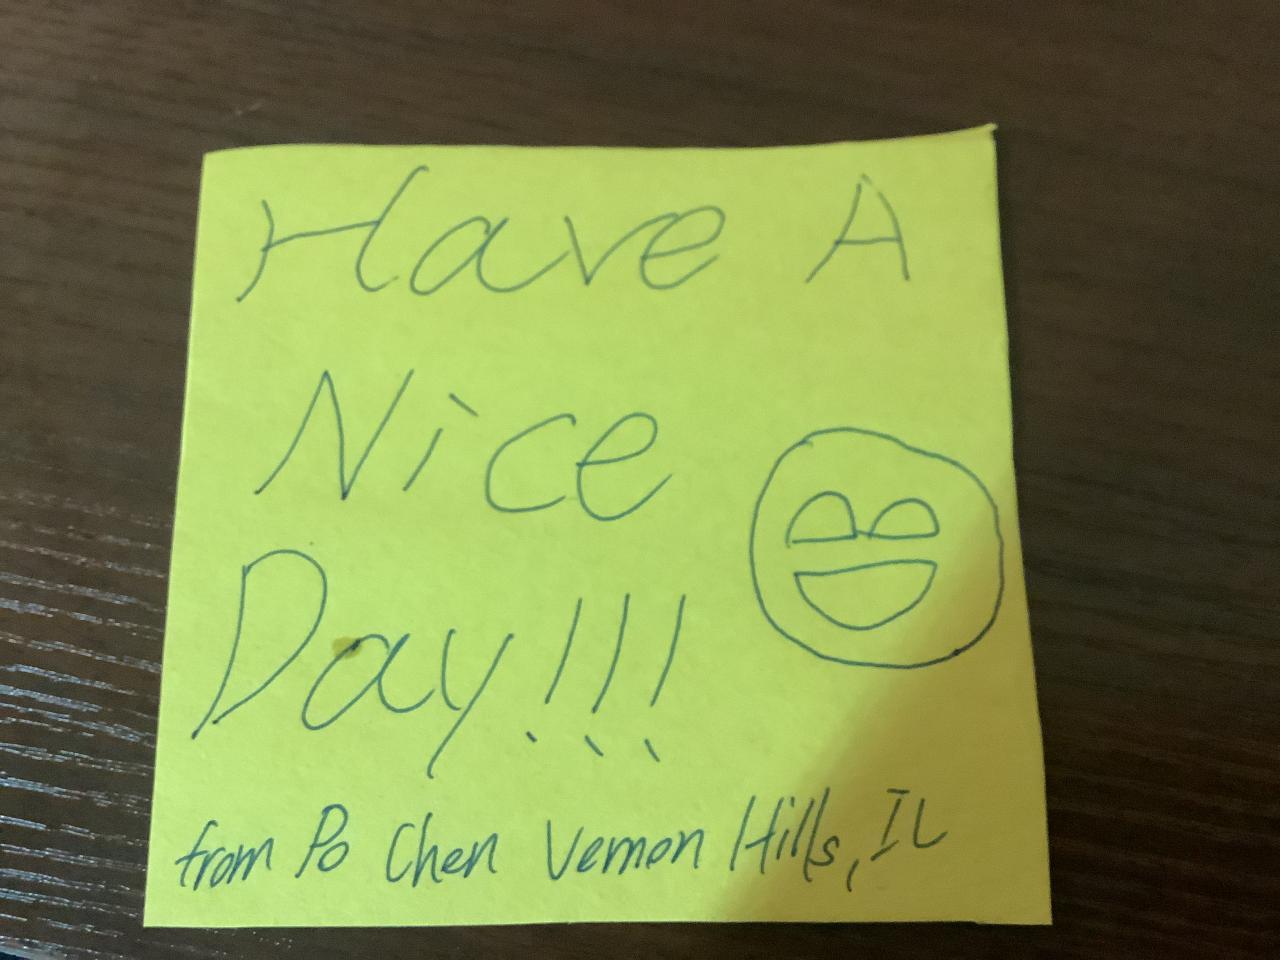 Have A
Nice
Day!!!
from Po Chen Vernon Hills, IL